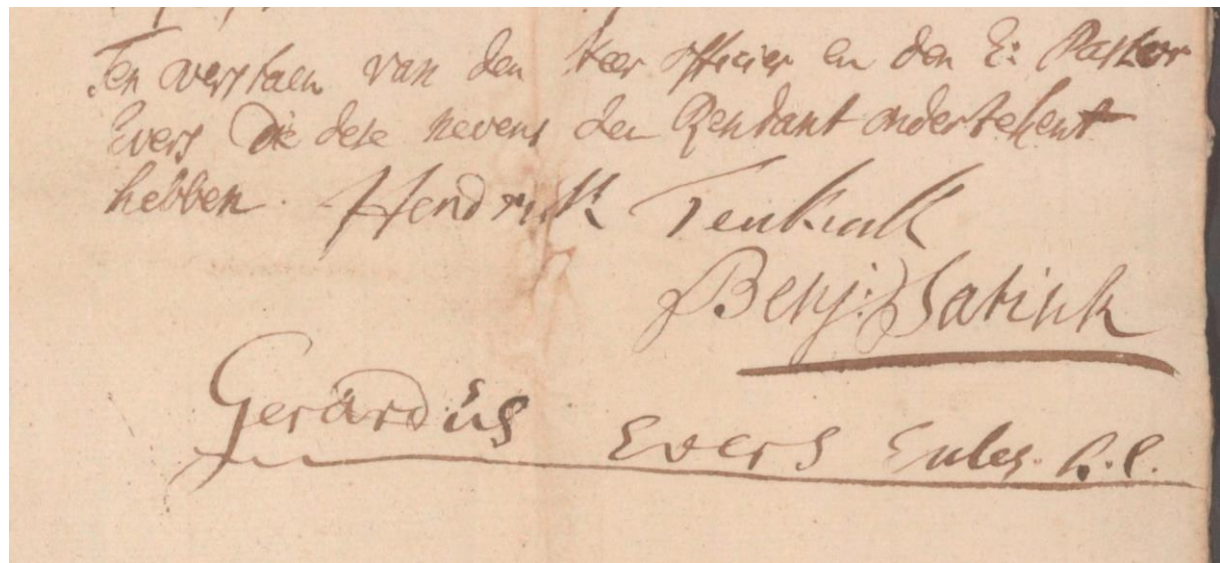 Ten overstaen van den Heer officier en den E: Pastor
Evers die dese nevens den Rendant ondertekent
hebben. Hendrick Tenkink
Benj: Satink
Gerardus Evers